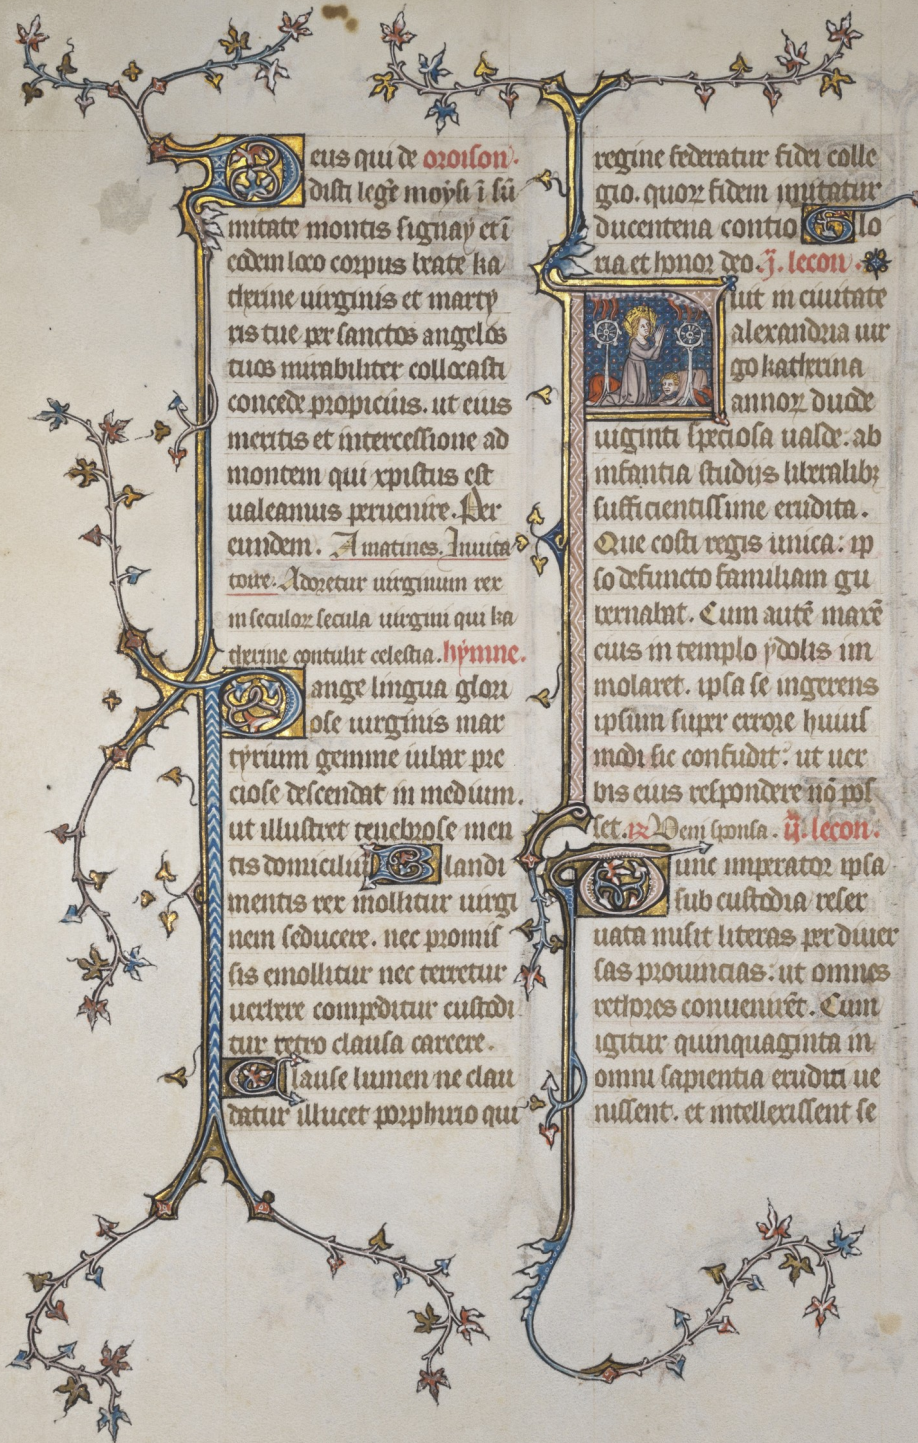 Deus qui de oroison.
disti legē moysi ī sū
mitate montis signay et ī
eodem loco corpus beate ka
therine uirginis et marty
ris tue per sanctos angelos
tuos mirabiliter collocasti
concede propicius. ut eius
meritis et intercessione ad
montem qui xpistus est
ualeamus peruenire. Per
eundem. A matines. Inuita
toire. Adoretur uirginum rex
in seculoꝝ secula uirgini qui ka
therine contulit celestia. hymne.
Pange lingua glori
ose uirginis mar
tyrium gemme iubar pre
ciose descendat in medium.
ut illustret tenebrose men
tis domiciliū Blandi
mentis rex mollitur uirgi
nem seducere. nec promis
sis emollitur nec terretur
uerbere compeditur custodi
tur retro clausa carcere.
Clause lumen ne clau
datur illucet porphirio qui
regine federatur fidei colle
gio. quoꝝ fidem imitatur
ducentena contio Glo
ria et honor deo. j. lecon.
Fuit in ciuitate
alexandria uir
go katherina
annoꝝ duode
uiginti speciosa ualde. ab
infantia studijs liberalibꝫ
sufficientissime erudita.
Que costi regis unica: ip
so defuncto familiam gu
bernabat. Cum autē maxē
eius in templo ydolis im
molaret. ipsa se ingerens
ipsum super errore huius
modi sic confudit: ut uer
bis eius respondere nō pos
set. ℞ Veni sponsa. ij. lecon.
Tunc imperator ipsa
sub custodia reser
uata misit literas per diuer
sas prouincias: ut omnes
rethores conuenirēt. Cum
igitur quinquaginta in
omni sapientia eruditi ue
nissent. et intellexissent se